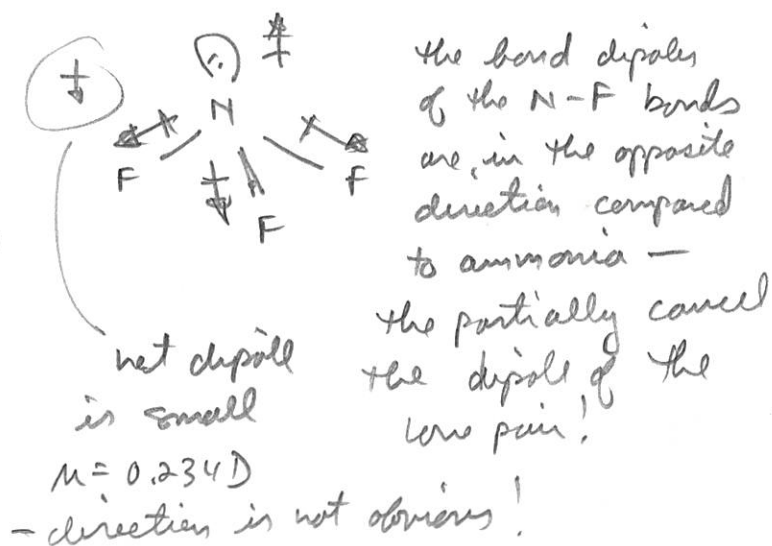 N
F
F
F
the bond dipoles
of the N-F bonds
are, in the opposite
direction compared
to ammonia —
the partially cancel
the dipole of the
lone pair!
net dipole
is small
μ = 0.234 D
- direction is not obvious!